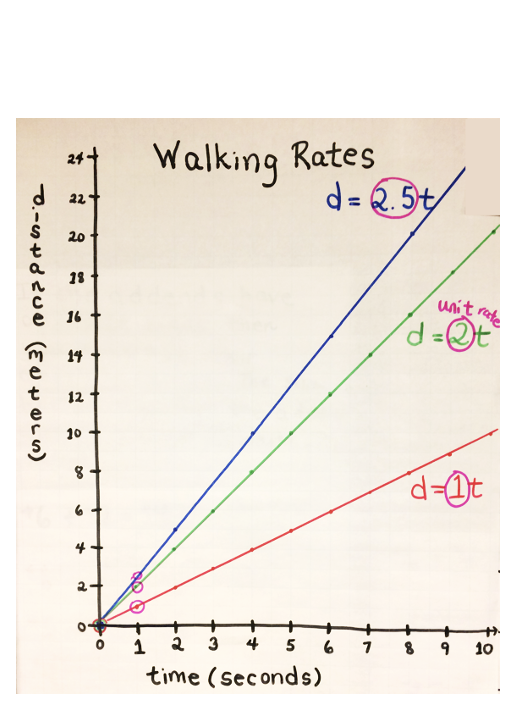 Walking Rates
distance (meters)
24
22
20
18
16
14
12
10
8
6
4
2
0
d = 2.5t
unit rate
d = 2t
d = 1t
0 1 2 3 4 5 6 7 8 9 10
time (seconds)